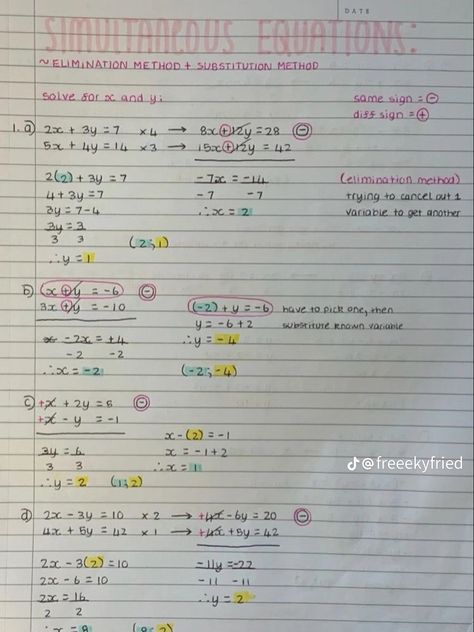 DATE
SIMULTANEOUS EQUATIONS:
~ELIMINATION METHOD + SUBSTITUTION METHOD
Solve for x and y:
same sign = ⊖
diff sign = ⊕
1. a) 2x + 3y = 7 x4 → 8x ⊕ 12y = 28 ⊖
5x + 4y = 14 x3 → 15x ⊕ 12y = 42
2(2) + 3y = 7
4 + 3y = 7
3y = 7-4
3y = 3
3 3
∴ y = 1
(2;1)
-7x = -14
-7 -7
∴ x = 2
(elimination method)
trying to cancel out 1
variable to get another
b) (x ⊕ y = -6) ⊖
3x ⊕ y = -10
-2x = +4
-2 -2
∴ x = -2
(-2) + y = -6
y = -6 + 2
∴ y = -4
(-2;-4)
have to pick one, then
substitute known variable
c) +x + 2y = 8 ⊖
+x - y = -1
3y = 6
3 3
∴ y = 2 (1;2)
x - (2) = -1
x = -1 + 2
∴ x = 1
@freeekyfried
d) 2x - 3y = 10 x2 → +4x - 6y = 20 ⊖
4x + 5y = 42 x1 → +4x + 5y = 42
2x - 3(2) = 10
2x - 6 = 10
2x = 16
2 2
∴ x = 8 (8;2)
-11y = -22
-11 -11
∴ y = 2